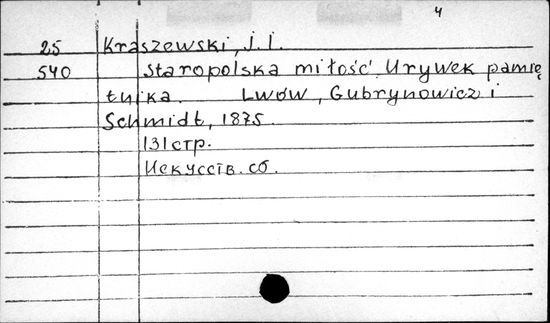 4
25 Kraszewski, J. I.
540 Staropolska miłość. Urywek pamię
tnika. Lwów, Gubrynowicz i
Schmidt, 1875.
131 стр.
Искусств. сб.